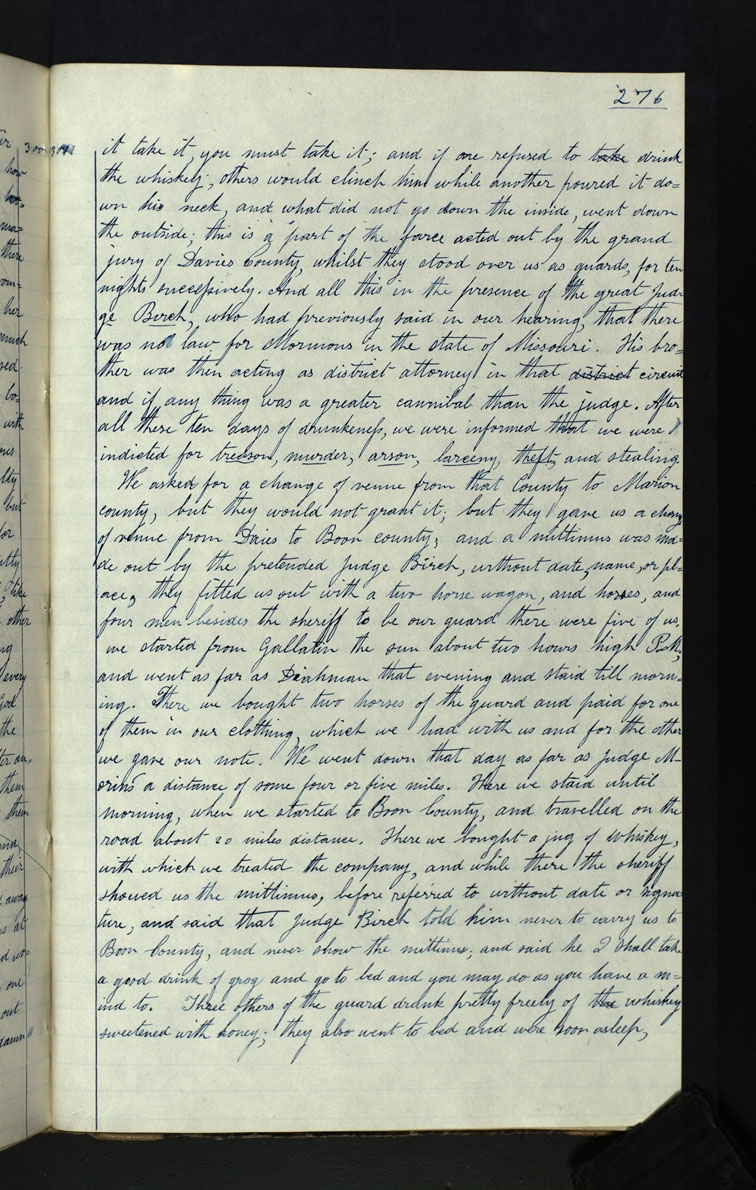 276
it take it, you must take it; and if one refused to take drink
the whiskey; others would clinch him while another poured it do=
wn his neck, and what did not go down the inside, went down
the outside; this is a part of the farce acted out by the grand
jury of Davies County, whilst they stood over us as guards, for ten
nights successively. And all this in the presence of the great Jud=
ge Berch, who had previously said in our hearing, that there
was not law for Mormons in the state of Missouri. His bro=
ther was then acting as district attorney in that district circuit
and if any thing was a greater cannibal than the judge. After
all these ten days of drunkenness, we were informed that we were
indicted for treason, murder, arson, larceny, theft, and stealing.
We asked for a change of venue from that County to Marion
county, but they would not grant it; but they gave us a change
of venue from Davies to Boon county, and a mittimus was ma=
de out by the pretended Judge Birch, without date, name, or pl=
ace, they fitted us out with a two horse wagon, and horses, and
four men besides the sheriff to be our guard there were five of us,
we started from Gallatin the sun about two hours high P.M.,
and went as far as Diahman that evening and staid till morn=
ing. There we bought two horses of the guard and paid for one
of them in our clothing, which we had with us and for the other
we gave our note. We went down that day as far as Judge M-
orins a distance of some four or five miles. Here we staid until
morning, when we started to Boon County, and travelled on the
road about 20 miles distance. There we bought a jug of whiskey,
with which we treated the company, and while there the sheriff
showed us the mittimus, before referred to without date or signa
ture, and said that Judge Birch told him never to carry us to
Boon County, and never show the mittimus; and said he I shall take
a good drink of grog and go to bed and you may do as you have a m=
ind to. Three others of the guard drank pretty freely of the whiskey
sweetened with honey; they also went to bed and were soon asleep,